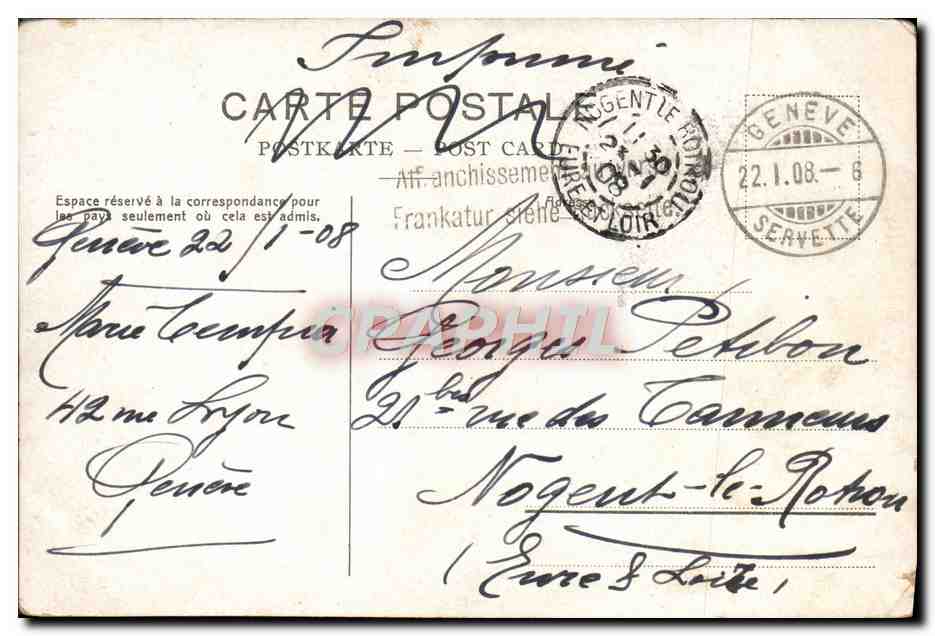 Imprimé
CARTE POSTALE
POSTKARTE — POST CARD
Affranchissement
Frankatur siehe
NOGENT LE ROTROU
EURE ET LOIR
11 30
23
08
GENÈVE
22.I.08.— 6
SERVETTE
Espace réservé à la correspondance pour
les pays seulement où cela est admis.
Genève 22/1-08
Marie
42 rue Lyon
Genève
CPAPHIL
Monsieur
Georges Petibon
21 bis rue des Tanneurs
Nogent-le-Rotrou
(Eure & Loire)